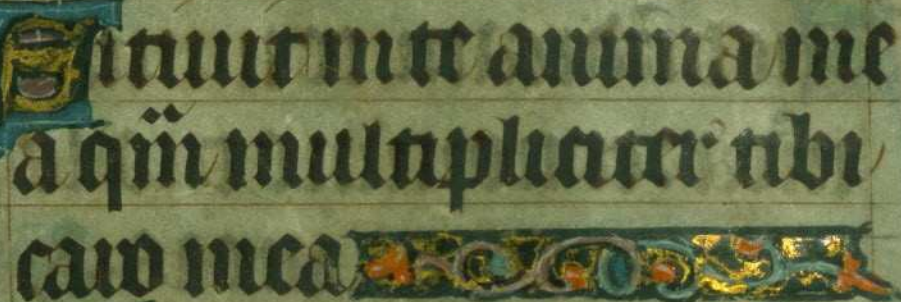 Sitiuit in te anima me
a qm̄ multipliciter tibi
caro mea